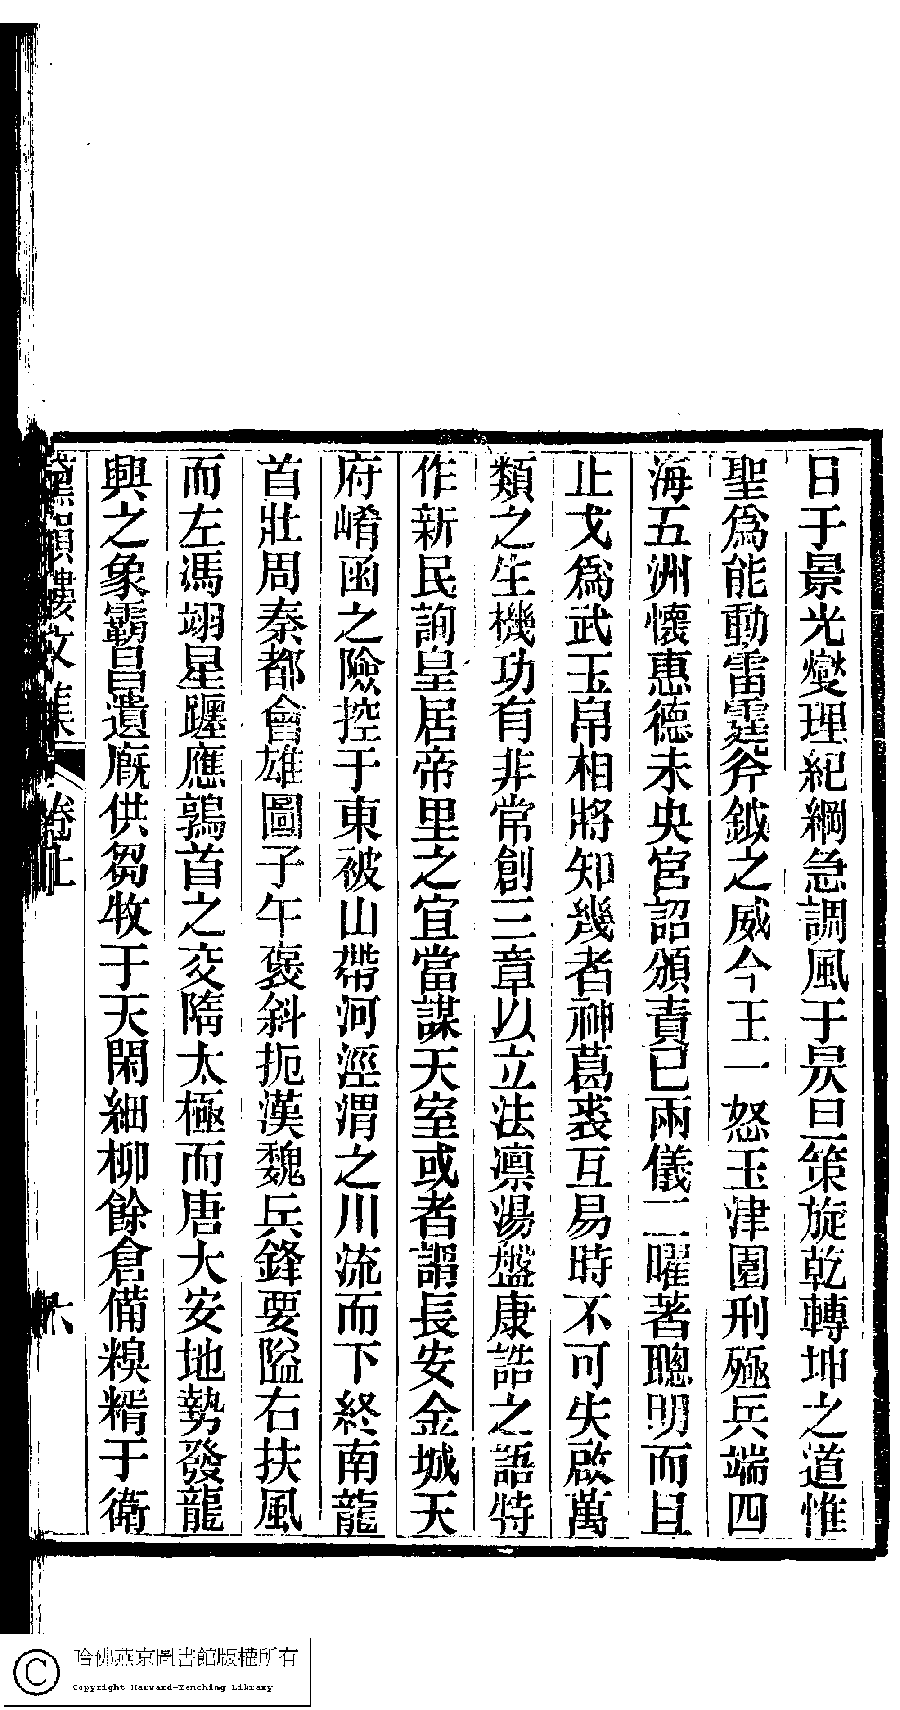 日于景光燮理紀綱急調風于昃旦策旋乾轉坤之道惟
聖爲能動雷霆斧鉞之威今王一怒玉津園刑殛兵端四
海五洲懷惠德未央宮詔頒責已兩儀二曜著聰明而且
止戈爲武玉帛相將知幾者神葛裘互易時不可失啟萬
類之生機功有非常創三章以立法凛湯盤康誥之語特
作新民詢皇居帝里之宜當謀天室或者謂長安金城天
府崤函之險控于東被山帶河涇渭之川流而下終南龍
首壯周秦都會雄圖子午褒斜扼漢魏兵鋒要隘右扶風
而左馮翊星躔應鶉首之交隋太極而唐大安地勢發龍
興之象霸昌遺廐供芻牧于天閑細柳餘倉備糗糈于衛
黛韻樓文集 卷上 六
哈佛燕京圖書館版權所有
Copyright Harvard-Yenching Library